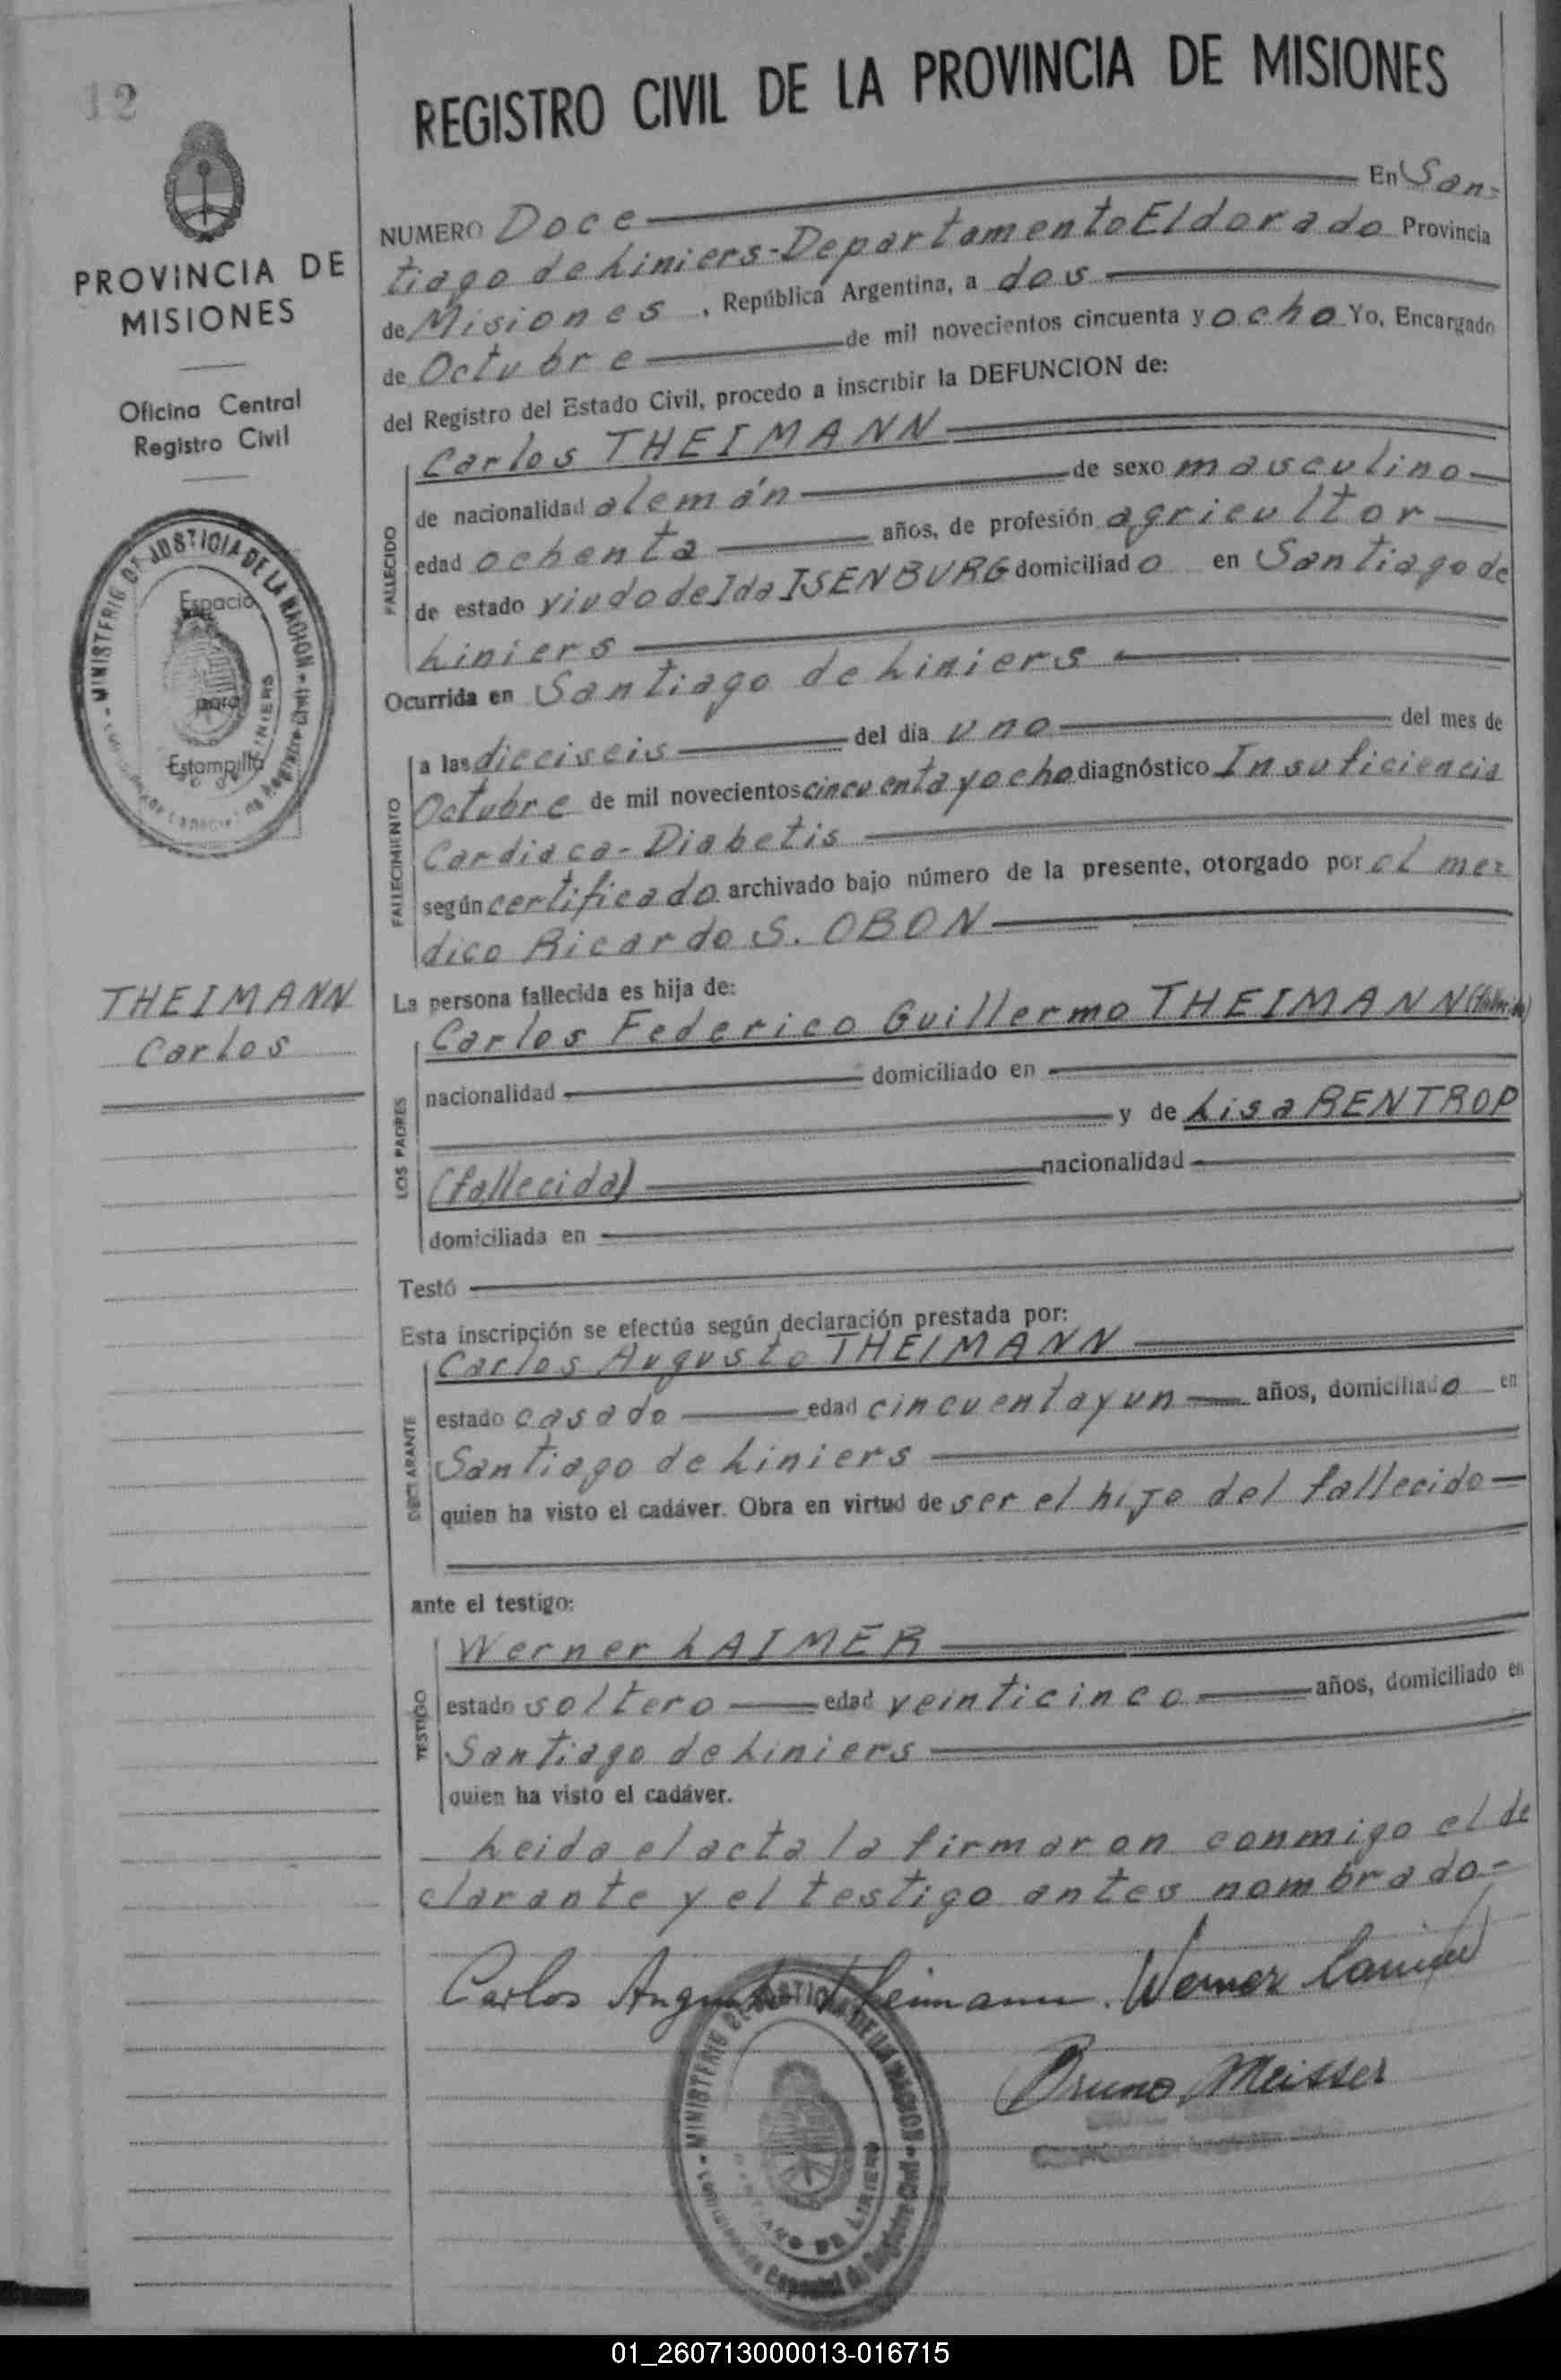 12
PROVINCIA DE
MISIONES
Oficina Central
Registro Civil
MINISTERIO DE JUSTICIA DE LA NACION
Espacio
para
Estampilla
THEIMANN
Carlos
REGISTRO CIVIL DE LA PROVINCIA DE MISIONES
NUMERO Doce En San-
tiago de Liniers-Departamento Eldorado Provincia
de Misiones, República Argentina, a dos
de Octubre de mil novecientos cincuenta y ocho Yo, Encargado
del Registro del Estado Civil, procedo a inscribir la DEFUNCION de:
FALLECIDO
Carlos THEIMANN
de nacionalidad alemán de sexo masculino
edad ochenta años, de profesión agricultor
de estado viudo de Ida ISENBURG domiciliado en Santiago de
Liniers
Ocurrida en Santiago de Liniers
FALLECIMIENTO
a las dieciseis del día uno del mes de
Octubre de mil novecientos cincuenta y ocho diagnóstico Insuficiencia
Cardiaca-Diabetis
según certificado archivado bajo número de la presente, otorgado por el me=
dico Ricardo S. OBON
La persona fallecida es hija de:
LOS PADRES
Carlos Federico Guillermo THEIMANN (fallecido)
nacionalidad domiciliado en
y de Lisa RENTROP
(fallecida) nacionalidad
domiciliada en
Testó
Esta inscripción se efectúa según declaración prestada por:
DECLARANTE
Carlos Augusto THEIMANN
estado casado edad cincuenta y un años, domiciliado en
Santiago de Liniers
quien ha visto el cadáver. Obra en virtud de ser el hijo del fallecido
ante el testigo:
TESTIGO
Werner LAIMER
estado soltero edad veinticinco años, domiciliado en
Santiago de Liniers
quien ha visto el cadáver.
Leida el acta la firmaron conmigo el de
clarante y el testigo antes nombrado=
Carlos Augusto Theimann. Werner Laimer
Bruno Meisser
MINISTERIO DE JUSTICIA DE LA NACION
SANTIAGO DE LINIERS
Especial de Registro Civil
01_260713000013-016715